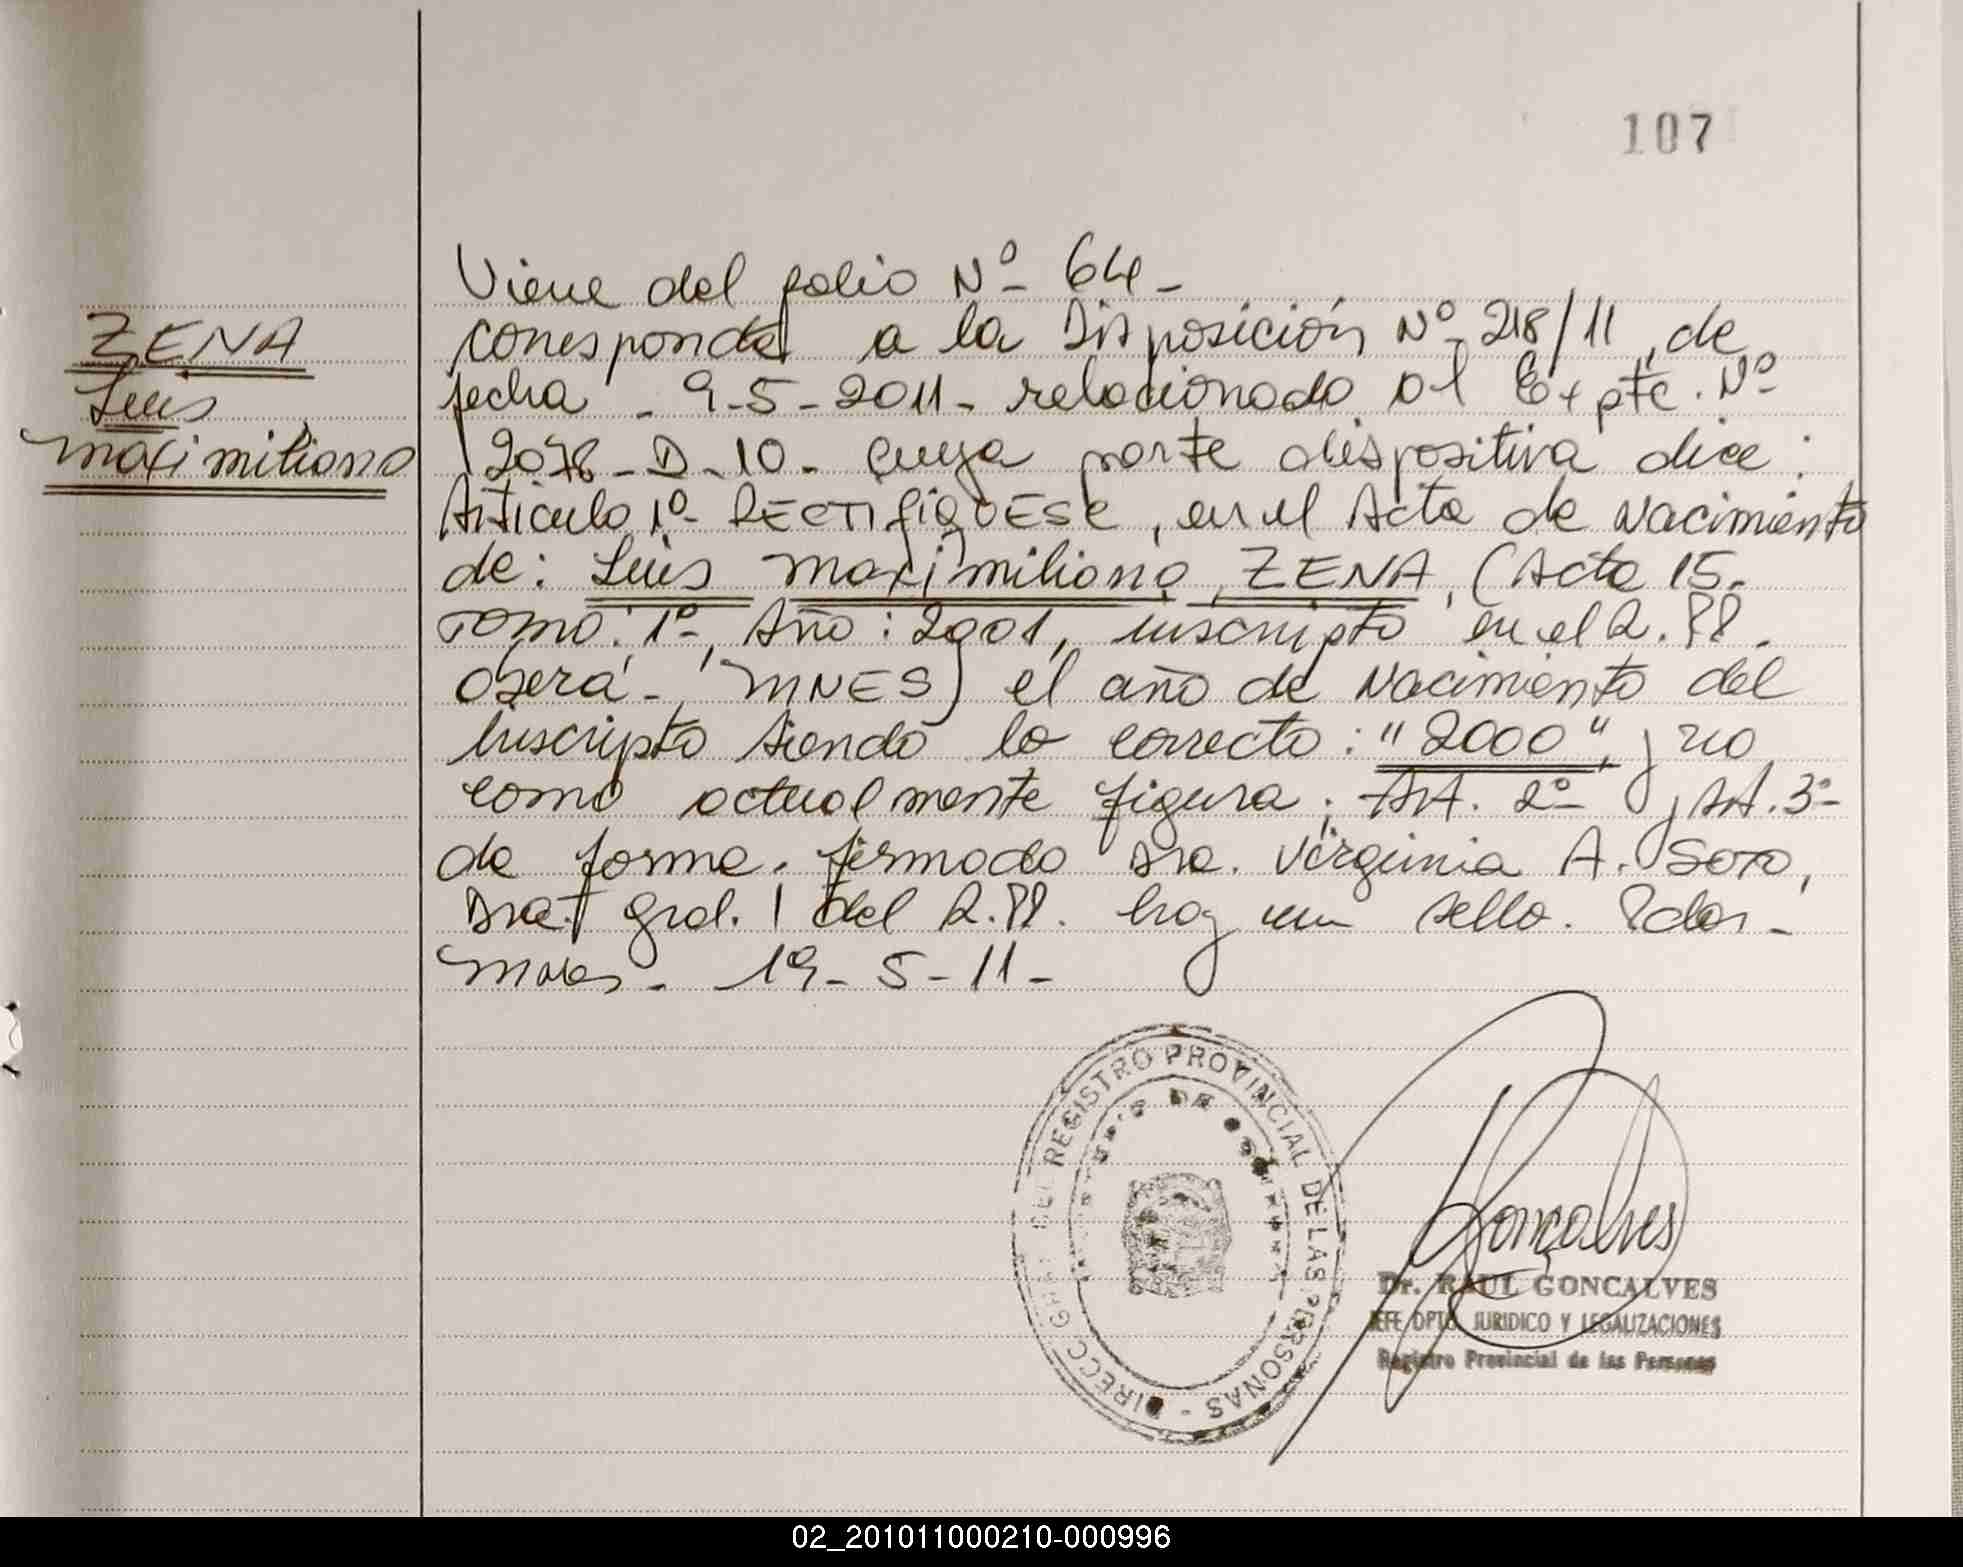 107
Viene del folio Nº 64 -
ZENA
Luis
Maximiliano
corresponde a la Disposición Nº 218/11, de
fecha - 9-5-2011- relacionado al Expte. Nº
2078-D-10- cuya parte dispositiva dice:
Articulo 1º- RECTIFIQUESE, en el Acta de Nacimiento
de: Luis Maximiliano ZENA, (Acta 15-
Tomo: 1º, Año: 2001, inscripto en el R.PP.
Oberá - MNES) el año de Nacimiento del
inscripto siendo lo correcto: "2000", y no
como actualmente figura. Art. 2º y Art. 3º-
de forma. firmado Dra. Virginia A. Soto,
Dra. Gral. del R.PP. hay un sello. Pdas -
Mnes - 19-5-11-
DIRECC GRAL DEL REGISTRO PROVINCIAL DE LAS PERSONAS -
Goncalves
Dr. RAUL GONCALVES
JEFE DPTO. JURIDICO Y LEGALIZACIONES
Registro Provincial de las Personas
02_201011000210-000996